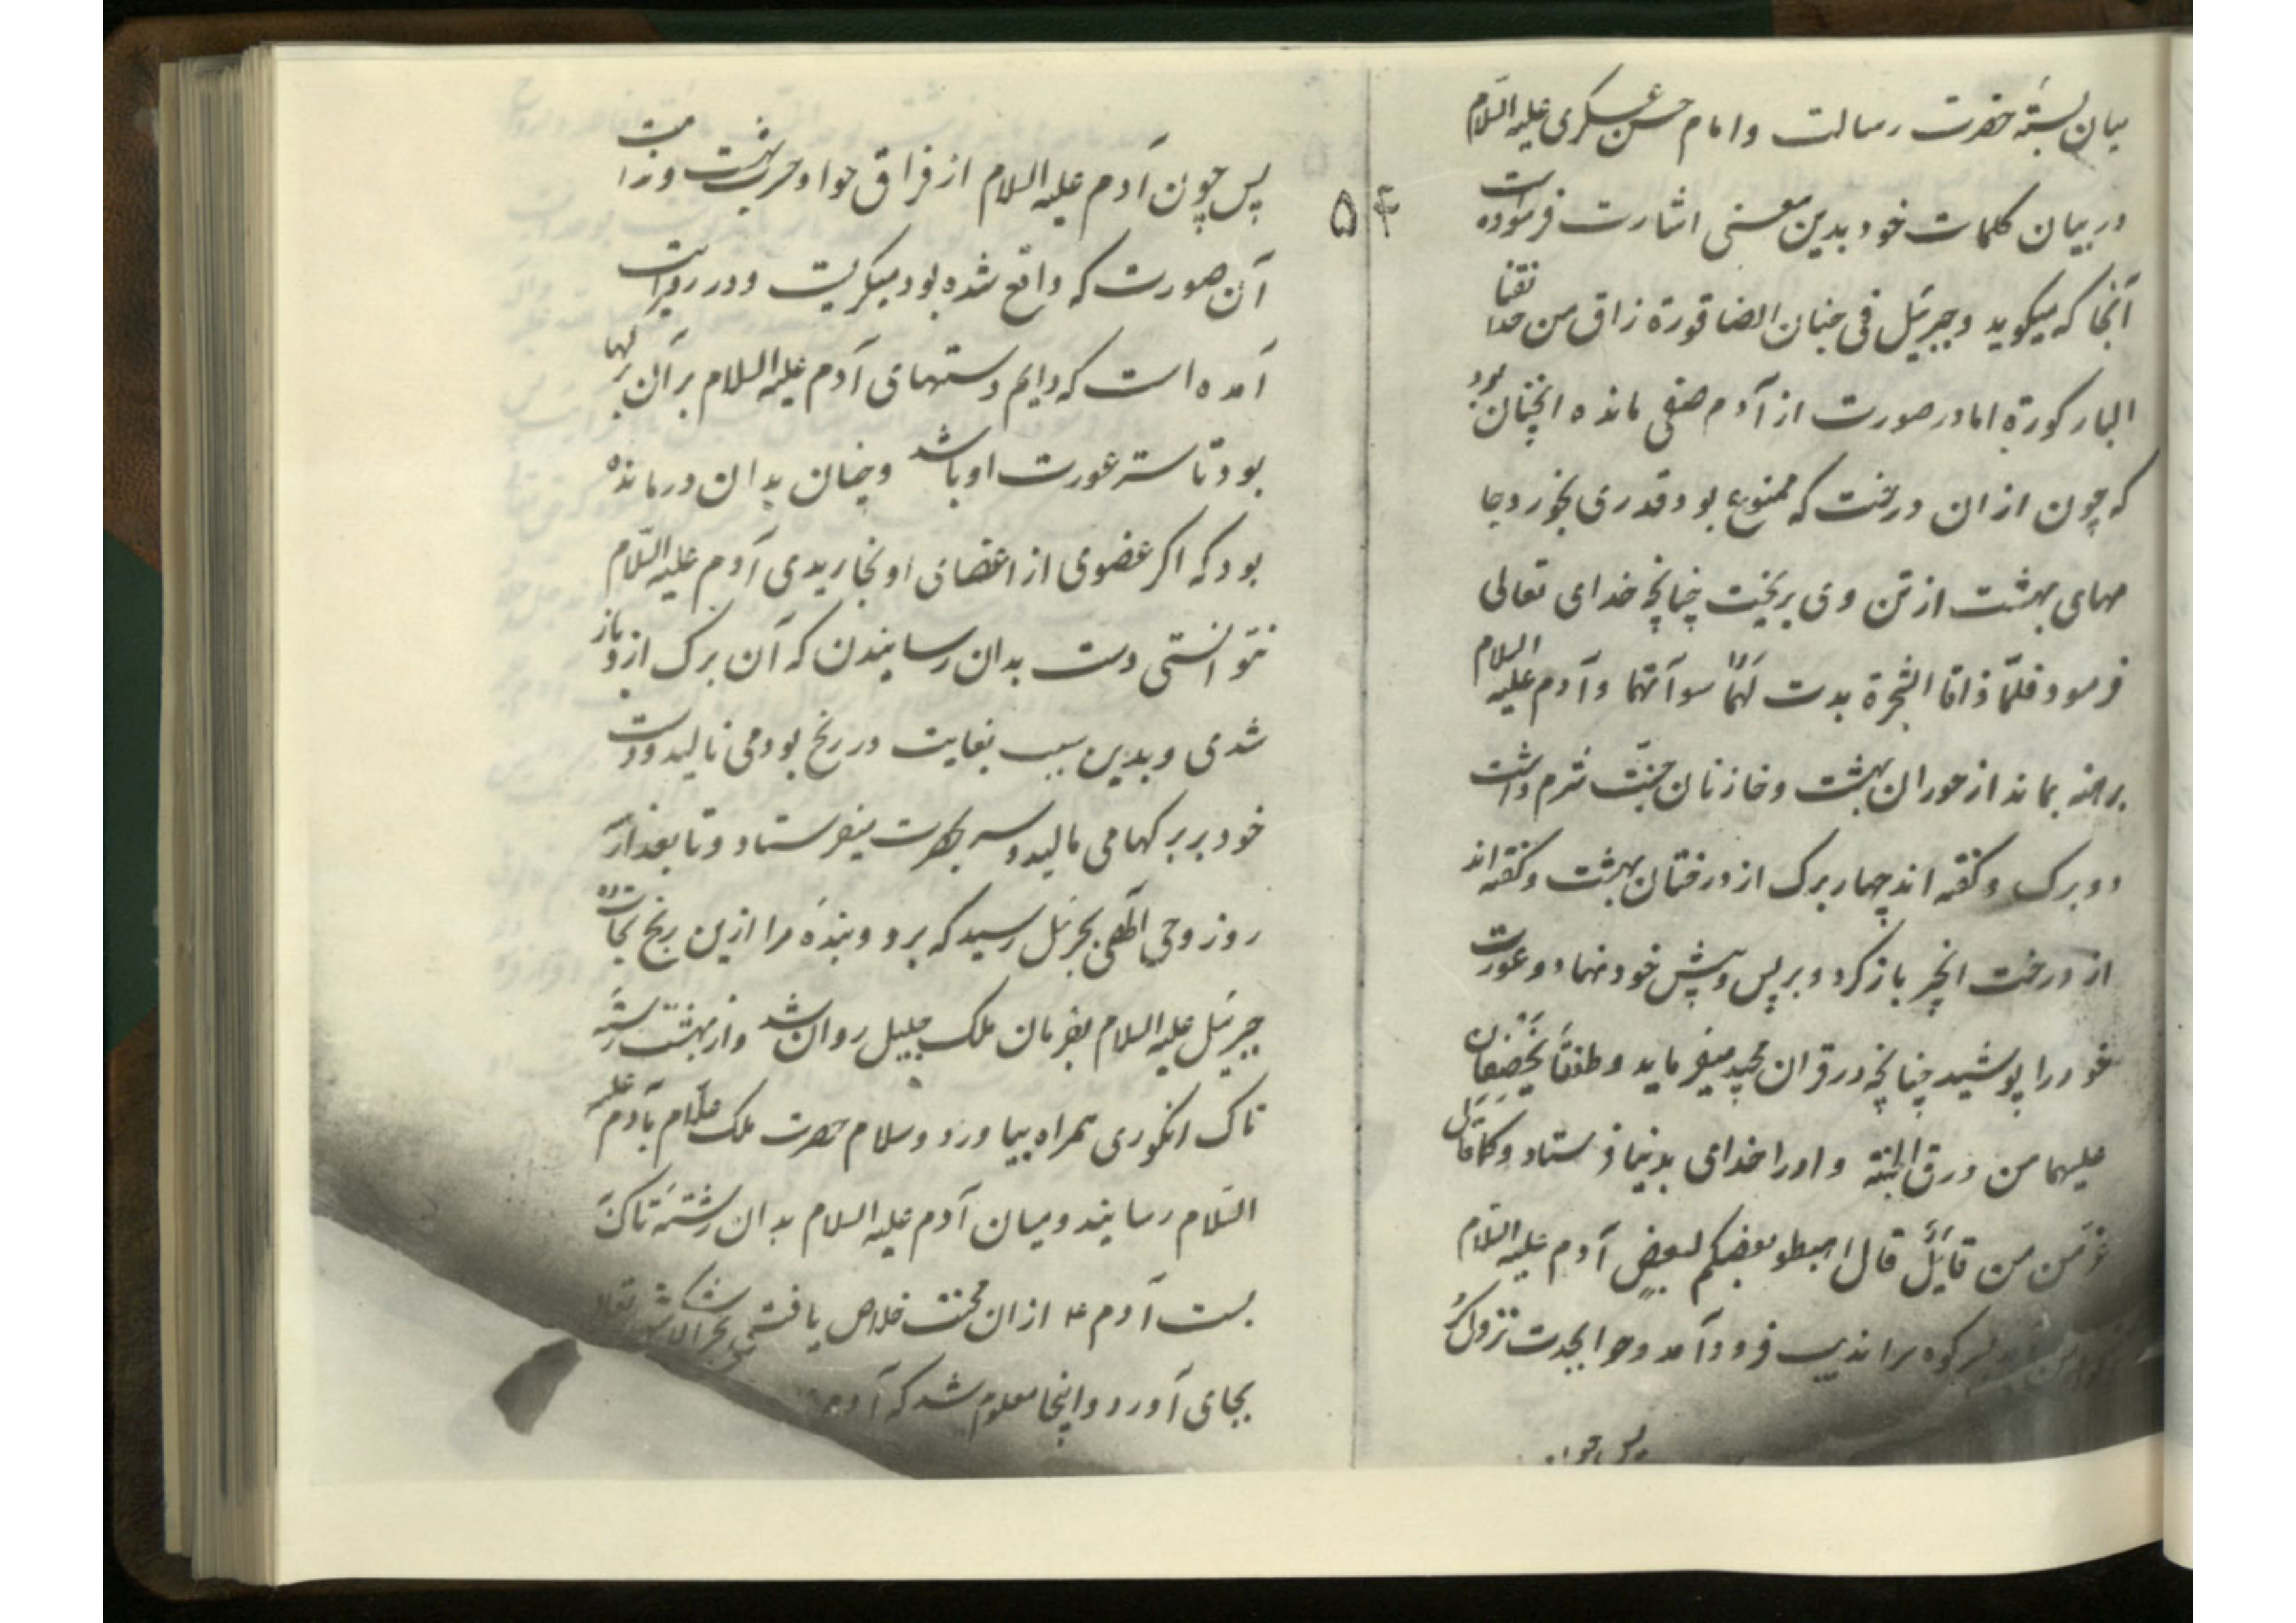 میان بستهٔ حضرت رسالت و امام حسن عسکری علیه السلام
در بیان کلمات خود بدین معنی اشارت فرموده است
آنجا که میگوید و جبرئیل فی جنان الصاقورة ذاق من حدائقنا
الباکورة اما در صورت از آدم صفی مانده انچنان بود
که چون از ان درخت که ممنوع بود قدری بخورد جا
مهای بهشت از تن وی بریخت چنانچه خدای تعالی
فرمود فلمّا ذاقا الشجرة بدت لهما سوآتهما و آدم علیه السلام
برهنه بماند از حوران بهشت و خازنان جنّت شرم داشت
دو برک و کفته اند چهار برک از درختان بهشت و کفته اند
از درخت انجیر باز کرد و بر پس و پیش خود نهاد و عورت
خود را پوشید چنانچه در قران مجید میفرماید و طفقا یخصفان
علیهما من ورق الجنة و او را خدای بدنیا فرستاد و کما قال
عَزّ مَن من قائل قال اهبطو بعضکم لبعض آدم علیه السلام
کوه سراندیب فرود آمد و حوا بجدت نزول کرد
پس چون
۵۴
پس چون آدم علیه السلام از فراق حوا و حرب بهشت و ندامت
آن صورت که واقع شده بود میکریست و در روایت
آمده است که دایم دستهای آدم علیه السلام بر آن برکها
بود تا ستر عورت او باشد و چنان بدان درمانده
بود که اکر عضوی از اعضای او بخاریدی آدم علیه السلام
نتوانستی دست بدان رسانیدن که آن برک ازو باز
شدی و بدین سبب بغایت در رنج بود می نالید و دست
خود بر برکها می مالید و سر بحسرت میفرستاد و تا بعد از
روز وحی الهی بجبرئیل رسید که برو و بندهٔ مرا ازین رنج نجات ده
جبرئیل علیه السلام بفرمان ملک جلیل روان شد و از بهشت رشتهٔ
تاک انکوری همراه بیاورد و سلام حضرت ملک علّام بآدم علیه
السّلام رسانید و میان آدم علیه السلام بدان رشتهٔ تاک
بست آدم ع از ان محنت خلاص یافت
بجای آورد و اینجا معلوم شد که آدم